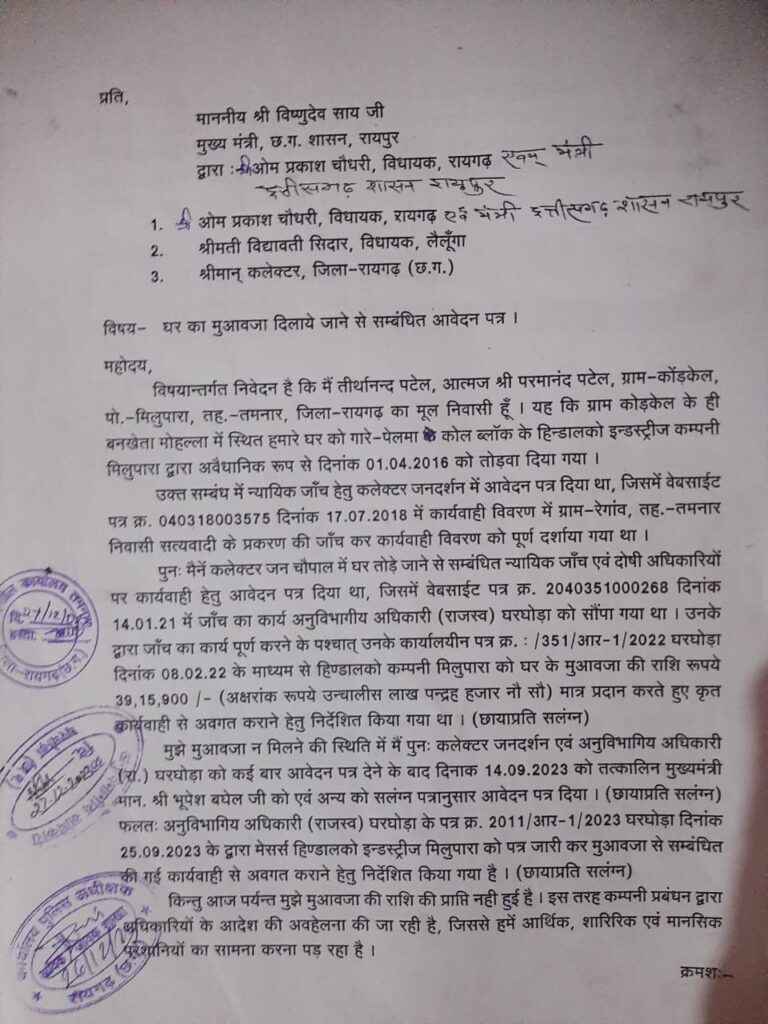 प्रति,
माननीय श्री विष्णुदेव साय जी
मुख्य मंत्री, छ.ग. शासन, रायपुर
द्वारा :- श्री ओम प्रकाश चौधरी, विधायक, रायगढ़ एवम् मंत्री
छत्तीसगढ़ शासन रायपुर
1. श्री ओम प्रकाश चौधरी, विधायक, रायगढ़ एवं मंत्री छत्तीसगढ़ शासन रायपुर
2. श्रीमती विद्यावती सिदार, विधायक, लैलूँगा
3. श्रीमान् कलेक्टर, जिला-रायगढ़ (छ.ग.)
विषय- घर का मुआवजा दिलाये जाने से सम्बंधित आवेदन पत्र ।
महोदय,
विषयान्तर्गत निवेदन है कि मैं तीर्थानन्द पटेल, आत्मज श्री परमानंद पटेल, ग्राम-कोंड़केल,
पो.-मिलुपारा, तह.-तमनार, जिला-रायगढ़ का मूल निवासी हूँ । यह कि ग्राम कोड़केल के ही
बनखेता मोहल्ला में स्थित हमारे घर को गारे-पेलमा कोल ब्लॉक के हिन्डालको इन्डस्ट्रीज कम्पनी
मिलुपारा द्वारा अवैधानिक रूप से दिनांक 01.04.2016 को तोड़वा दिया गया ।
उक्त सम्बंध में न्यायिक जाँच हेतु कलेक्टर जनदर्शन में आवेदन पत्र दिया था, जिसमें वेबसाईट
पत्र क्र. 040318003575 दिनांक 17.07.2018 में कार्यवाही विवरण में ग्राम-रेगांव, तह.-तमनार
निवासी सत्यवादी के प्रकरण की जाँच कर कार्यवाही विवरण को पूर्ण दर्शाया गया था ।
पुनः मैनें कलेक्टर जन चौपाल में घर तोड़े जाने से सम्बंधित न्यायिक जाँच एवं दोषी अधिकारियों
पर कार्यवाही हेतु आवेदन पत्र दिया था, जिसमें वेबसाईट पत्र क्र. 2040351000268 दिनांक
14.01.21 में जाँच का कार्य अनुविभागीय अधिकारी (राजस्व) घरघोड़ा को सौंपा गया था । उनके
द्वारा जाँच का कार्य पूर्ण करने के पश्चात् उनके कार्यालयीन पत्र क्र. : /351/आर-1/2022 घरघोड़ा
दिनांक 08.02.22 के माध्यम से हिण्डालको कम्पनी मिलुपारा को घर के मुआवजा की राशि रूपये
39,15,900 /- (अक्षरांक रूपये उन्चालीस लाख पन्द्रह हजार नौ सौ) मात्र प्रदान करते हुए कृत
कार्यवाही से अवगत कराने हेतु निर्देशित किया गया था । (छायाप्रति सलंग्न)
मुझे मुआवजा न मिलने की स्थिति में मैं पुनः कलेक्टर जनदर्शन एवं अनुविभागिय अधिकारी
(रा.) घरघोड़ा को कई बार आवेदन पत्र देने के बाद दिनाक 14.09.2023 को तत्कालिन मुख्यमंत्री
मान. श्री भूपेश बघेल जी को एवं अन्य को सलंग्न पत्रानुसार आवेदन पत्र दिया । (छायाप्रति सलंग्न)
फलतः अनुविभागिय अधिकारी (राजस्व) घरघोड़ा के पत्र क्र. 2011/आर-1/2023 घरघोड़ा दिनांक
25.09.2023 के द्वारा मेसर्स हिण्डालको इन्डस्ट्रीज मिलुपारा को पत्र जारी कर मुआवजा से सम्बंधित
की गई कार्यवाही से अवगत कराने हेतु निर्देशित किया गया है । (छायाप्रति सलंग्न)
किन्तु आज पर्यन्त मुझे मुआवजा की राशि की प्राप्ति नही हुई है । इस तरह कम्पनी प्रबंधन द्वारा
अधिकारियों के आदेश की अवहेलना की जा रही है, जिससे हमें आर्थिक, शारिरिक एवं मानसिक
परेशानियों का सामना करना पड़ रहा है ।
क्रमशः-
कार्यालय पुलिस अधीक्षक
रायगढ़ (छ.ग.)